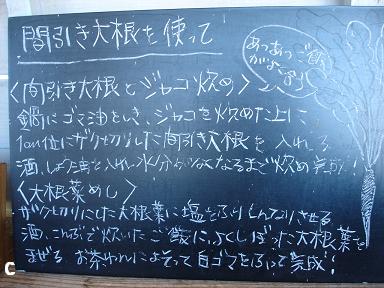 間引き大根を使って
あつあつご飯
がよく合う
<間引き大根とジャコ炒め>
鍋にゴマ油をしき、ジャコを炒めた上に
1cm位にザク切りした間引き大根を入れる。
酒、しょうゆを入れ、水分がなくなるまで炒め完成!
<大根菜めし>
ザク切りにした大根葉に塩をふりしんなりさせる
酒、こんぶで炊いたご飯に、よくしぼった大根葉を
まぜる お茶わんによそって白ゴマをふって完成!
C